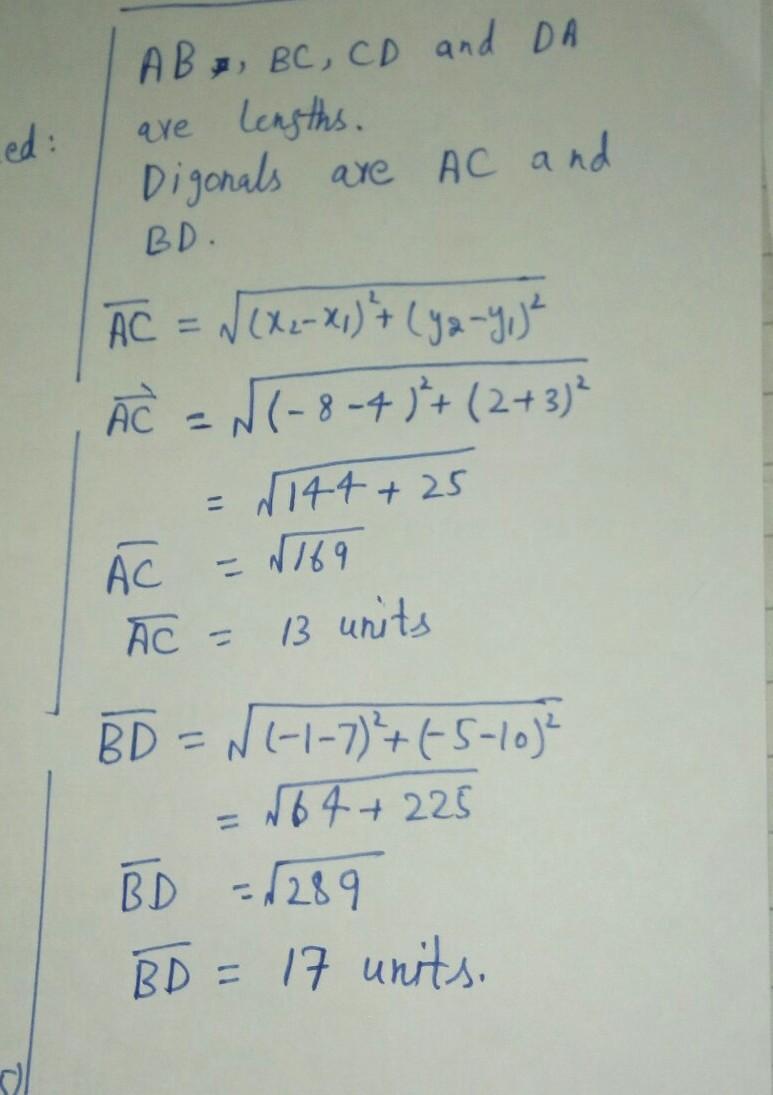 AB, BC, CD and DA
ed:
are lengths.
Digonals are AC and
BD.
AC = √(x₂-x₁)²+(y₂-y₁)²
AC = √(-8-4)²+(2+3)²
= √144+25
AC = √169
AC = 13 units
BD = √(-1-7)²+(-5-10)²
= √64+225
BD = √289
BD = 17 units.